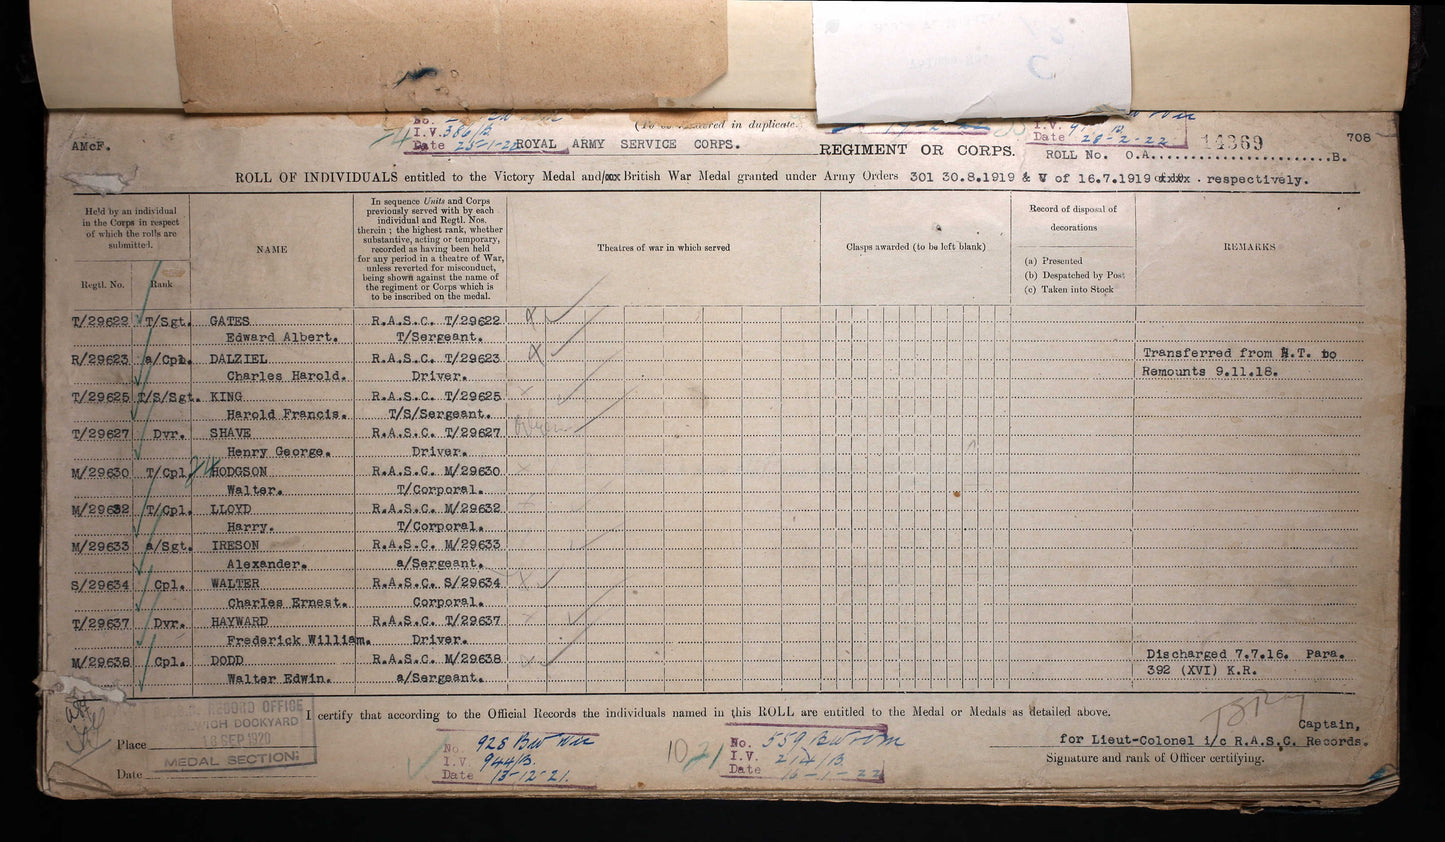 I.V. 386/B
Date 25-1-22
(To be rendered in duplicate.
I.V.
Date 28-2-22
14369
708
AMcF.
ROYAL ARMY SERVICE CORPS. REGIMENT OR CORPS.
ROLL No. O.A. B.
ROLL OF INDIVIDUALS entitled to the Victory Medal and/ British War Medal granted under Army Orders 301 30.8.1919 & V of 16.7.1919 respectively.
Held by an individual
in the Corps in respect
of which the rolls are
submitted.
Regtl. No.
Rank
NAME
In sequence Units and Corps
previously served with by each
individual and Regtl. Nos.
therein; the highest rank, whether
substantive, acting or temporary,
recorded as having been held
for any period in a theatre of War,
unless reverted for misconduct,
being shown against the name of
the regiment or Corps which is
to be inscribed on the medal.
Theatres of war in which served
Clasps awarded (to be left blank)
Record of disposal of
decorations
(a) Presented
(b) Despatched by Post
(c) Taken into Stock
REMARKS
T/29622 T/Sgt. GATES R.A.S.C. T/29622
Edward Albert. T/Sergeant.
R/29623 a/Cpl. DALZIEL R.A.S.C. T/29623 Transferred from H.T. to
Charles Harold. Driver. Remounts 9.11.18.
T/29625 T/S/Sgt. KING R.A.S.C. T/29625
Harold Francis. T/S/Sergeant.
T/29627 Dvr. SHAVE R.A.S.C. T/29627
Henry George. Driver.
M/29630 T/Cpl. HODGSON R.A.S.C. M/29630
Walter. T/Corporal.
M/29632 T/Cpl. LLOYD R.A.S.C. M/29632
Harry. T/Corporal.
M/29633 a/Sgt. IRESON R.A.S.C. M/29633
Alexander. a/Sergeant.
S/29634 Cpl. WALTER R.A.S.C. S/29634
Charles Ernest. Corporal.
T/29637 Dvr. HAYWARD R.A.S.C. T/29637
Frederick William. Driver.
M/29638 Cpl. DODD R.A.S.C. M/29638 Discharged 7.7.16. Para.
Walter Edwin. a/Sergeant. 392 (XVI) K.R.
I certify that according to the Official Records the individuals named in this ROLL are entitled to the Medal or Medals as detailed above.
RECORD OFFICE
WICH DOCKYARD
18 SEP 1920
MEDAL SECTION
Place
Date
No. 928
I.V. 944/B.
Date 13-12-21.
10
21
No. 559
I.V. 214/B
Date 16-1-22
Captain,
for Lieut-Colonel i/c R.A.S.C. Records.
Signature and rank of Officer certifying.